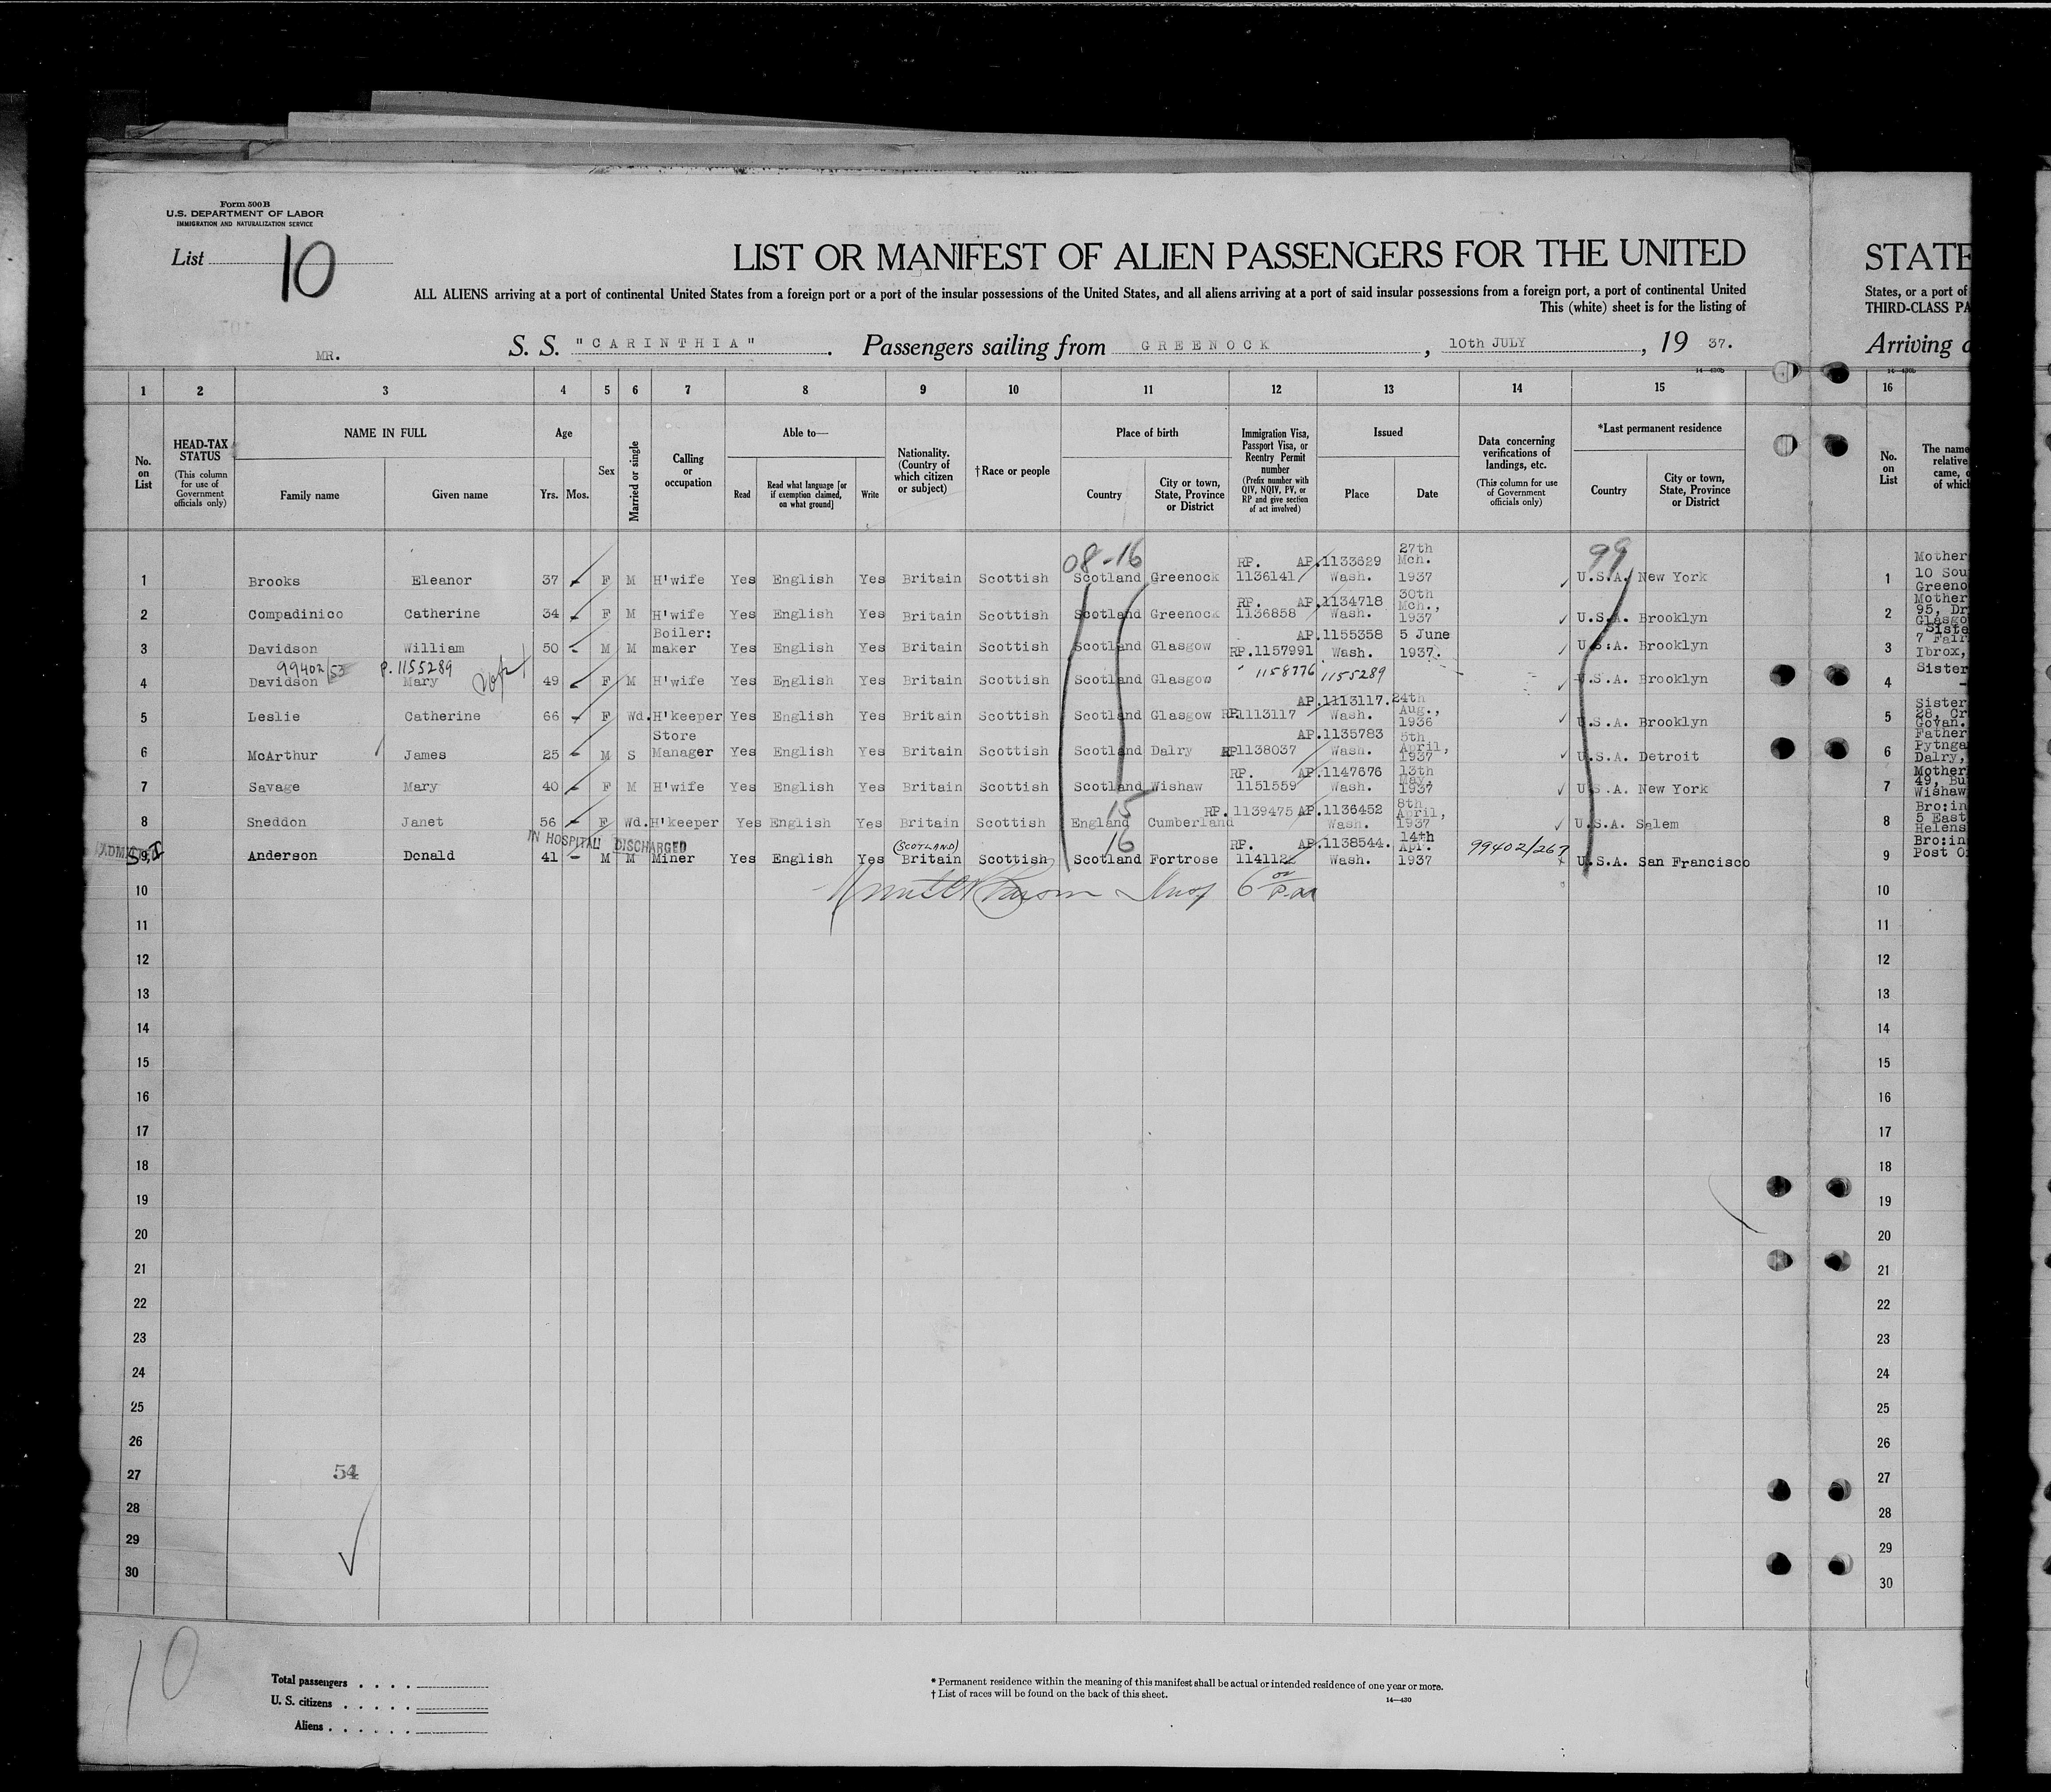 Form 500B
U.S. DEPARTMENT OF LABOR
IMMIGRATION AND NATURALIZATION SERVICE
List 10
LIST OR MANIFEST OF ALIEN PASSENGERS FOR THE UNITED
STATE
ALL ALIENS arriving at a port of continental United States from a foreign port or a port of the insular possessions of the United States, and all aliens arriving at a port of said insular possessions from a foreign port, a port of continental United
States, or a port of
This (white) sheet is for the listing of
THIRD-CLASS PA
MR.
S. S. "CARINTHIA". Passengers sailing from GREENOCK, 10th JULY, 19 37.
Arriving
14—430b 14—430b
1 2 3 4 5 6 7 8 9 10 11 12 13 14 15 16
No. on List
HEAD-TAX STATUS (This column for use of Government officials only)
NAME IN FULL Family name Given name
Age Yrs. Mos.
Sex
Married or single
Calling or occupation
Able to— Read Read what language [or if exemption claimed, on what ground] Write
Nationality. (Country of which citizen or subject)
†Race or people
Place of birth Country City or town, State, Province or District
Immigration Visa, Passport Visa, or Reentry Permit number (Prefix number with QIV, NQIV, PV, or RP and give section of act involved)
Issued Place Date
Data concerning verifications of landings, etc. (This column for use of Government officials only)
*Last permanent residence Country City or town, State, Province or District
No. on List
The name
relative
came,
of which
08-16 99
1 Brooks Eleanor 37 F M H'wife Yes English Yes Britain Scottish Scotland Greenock RP. 1136141 AP.1133629 Wash. 27th Mch. 1937 U.S.A. New York 1 Mother 10 Sou Greeno
2 Compadinico Catherine 34 F M H'wife Yes English Yes Britain Scottish Scotland Greenock RP. 1136858 AP.1134718 Wash. 30th Mch., 1937 U.S.A. Brooklyn 2 Mother 95, Dr Glasgo
3 Davidson William 50 M M Boiler: maker Yes English Yes Britain Scottish Scotland Glasgow RP.1157991 AP.1155358 Wash. 5 June 1937. U.S.A. Brooklyn 3 Siste 7 Fair Ibrox,
99402/53 P.1155289
4 Davidson Mary 49 F M H'wife Yes English Yes Britain Scottish Scotland Glasgow 1158776 1155289 U.S.A. Brooklyn 4 Sister
5 Leslie Catherine 66 F Wd. H'keeper Yes English Yes Britain Scottish Scotland Glasgow RP.1113117 AP.1113117. Wash. 24th Aug., 1936 U.S.A. Brooklyn 5 Sister 28, Cr Govan.
6 McArthur James 25 M S Store Manager Yes English Yes Britain Scottish Scotland Dalry RP1138037 AP.1135783 Wash. 5th April, 1937 U.S.A. Detroit 6 Father Pytnga Dalry,
7 Savage Mary 40 F M H'wife Yes English Yes Britain Scottish Scotland Wishaw RP. 1151559 AP.1147676 Wash. 13th May, 1937 U.S.A. New York 7 Mother 49, Bu Wishaw
15
8 Sneddon Janet 56 F Wd. H'keeper Yes English Yes Britain Scottish England Cumberland RP.1139475 AP.1136452 Wash. 8th April, 1937 U.S.A. Salem 8 Bro:in 5 East Helens
IN HOSPITAL DISCHARGED (SCOTLAND) 16
9 Anderson Donald 41 M M Miner Yes English Yes Britain Scottish Scotland Fortrose RP. 1141122 AP.1138544. Wash. 14th Apr. 1937 99402/267 U.S.A. San Francisco 9 Bro:in Post O
10 10
11 11
12 12
13 13
14 14
15 15
16 16
17 17
18 18
19 19
20 20
21 21
22 22
23 23
24 24
25 25
26 26
27 54 27
28 28
29 29
30 30
10
Total passengers
U. S. citizens
Aliens
* Permanent residence within the meaning of this manifest shall be actual or intended residence of one year or more.
† List of races will be found on the back of this sheet.
14—430